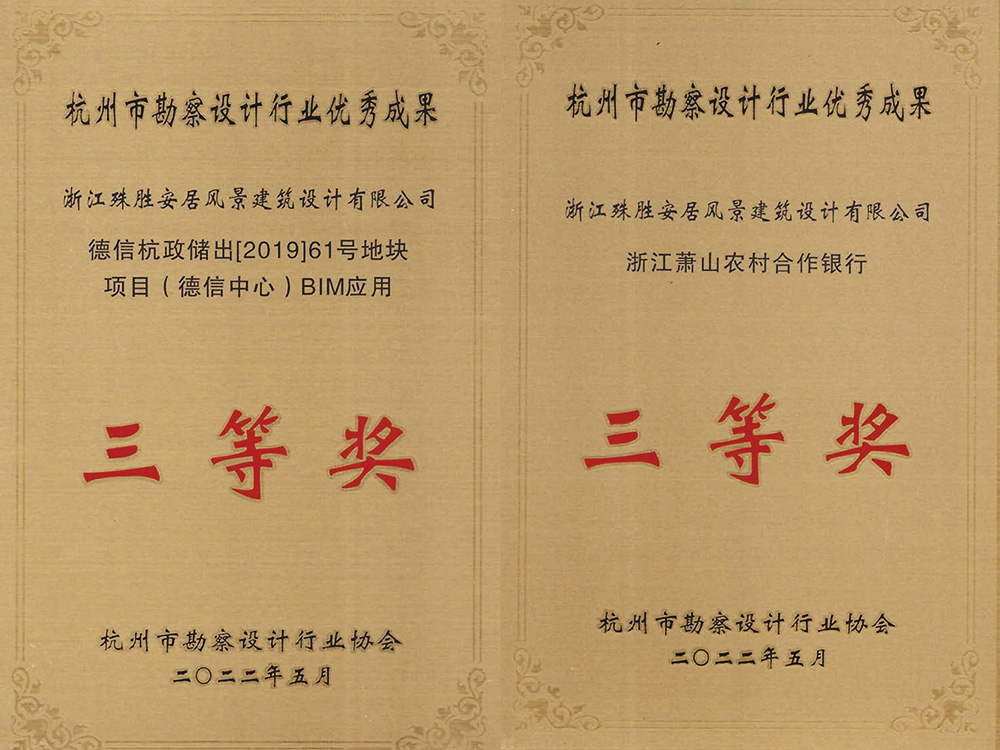 杭州市勘察设计行业优秀成果
浙江殊胜安居风景建筑设计有限公司
德信杭政储出[2019]61号地块
项目（德信中心）BIM应用
三等奖
杭州市勘察设计行业协会
二〇二二年五月
杭州市勘察设计行业优秀成果
浙江殊胜安居风景建筑设计有限公司
浙江萧山农村合作银行
三等奖
杭州市勘察设计行业协会
二〇二二年五月